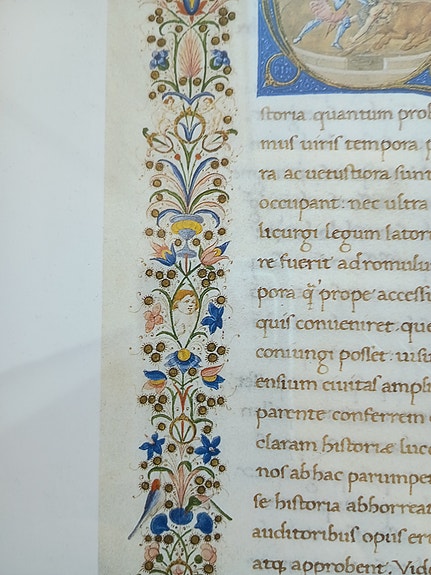 storia quantum prob
mus uiris tempora p
ra ac uetustiora sunt
occupant: nec ultra
licurgi legum lator
re fuerit ad romulu
pora q̃ prope accessi
quis conueniret que
coniungi posset uisu
ensium ciuitas ampl
parente conferrem
claram historiæ luce
nos ab hac parumper
se historia abhorrea
auditoribus opus er
atq approbent. Vide